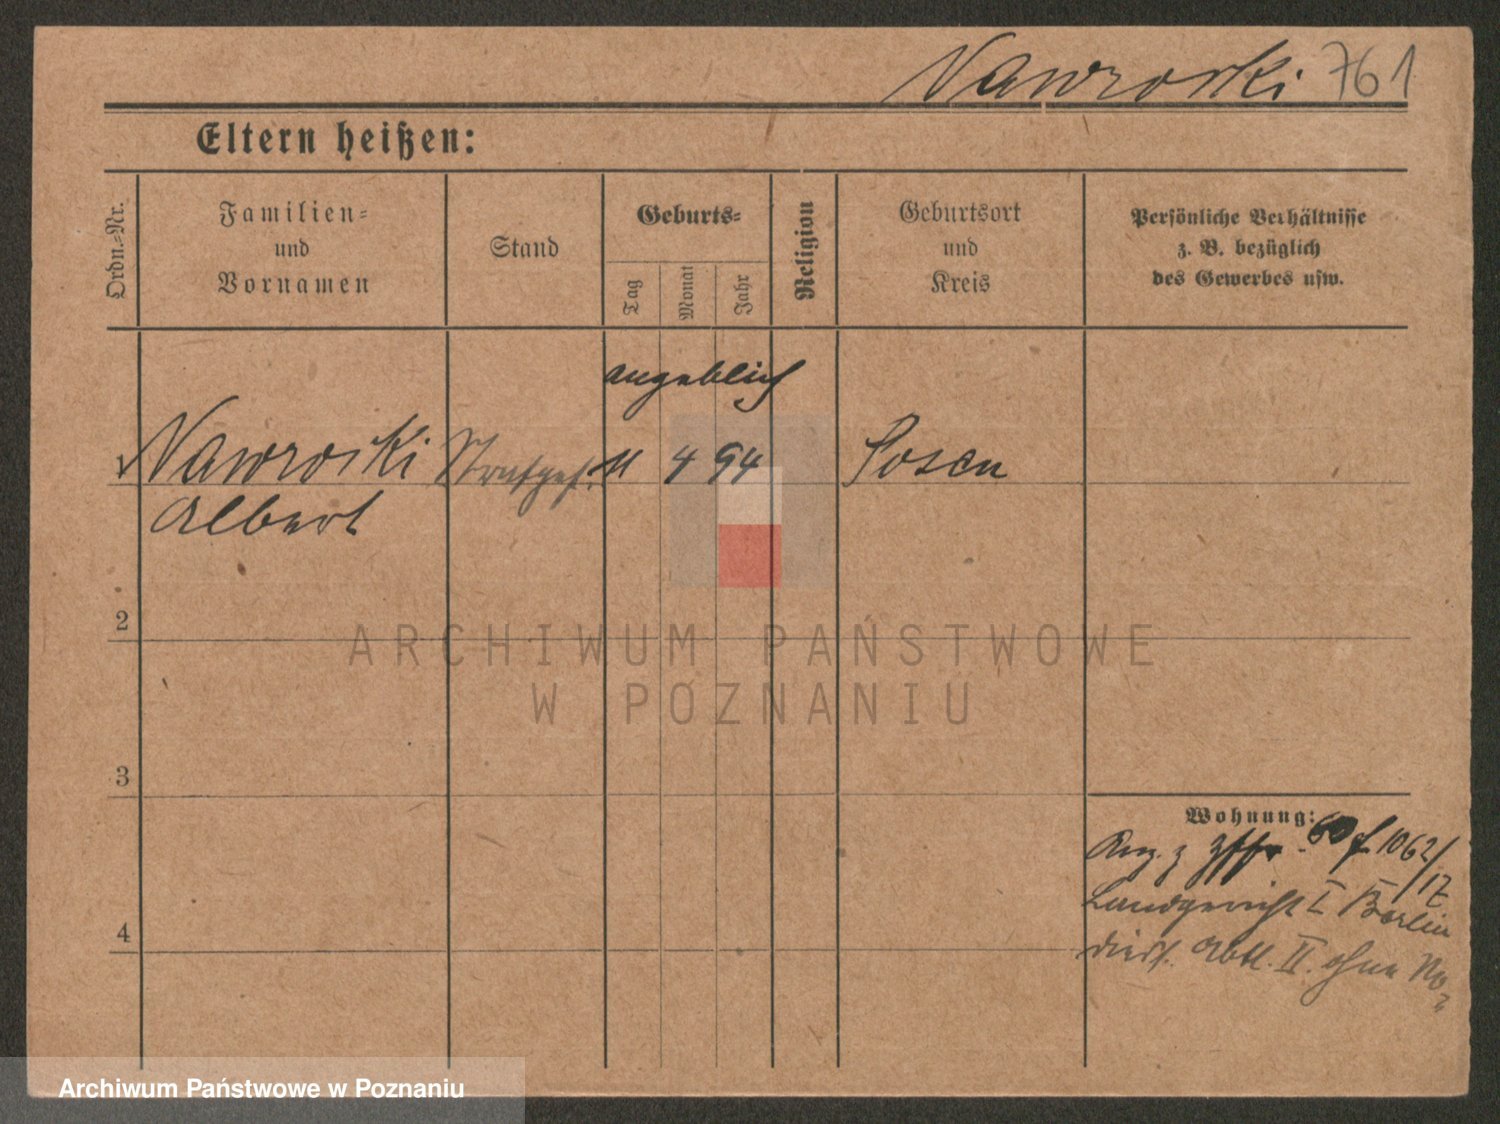 Nawroski 761
Eltern heißen:
Ordn.=Nr.
Familien=
und
Vornamen
Stand
Geburts=
Tag
Monat
Jahr
Religion
Geburtsort
und
Kreis
Persönliche Verhältnisse
z. B. bezüglich
des Gewerbes usw.
angeblich
1 Nawroski Strafgef. 11 4 94 Posen
Albert
2
3
4
Wohnung:
1062/17
Landgericht I Berlin
Abtl. II. ohne No.
ARCHIWUM PAŃSTWOWE
W POZNANIU
Archiwum Państwowe w Poznaniu